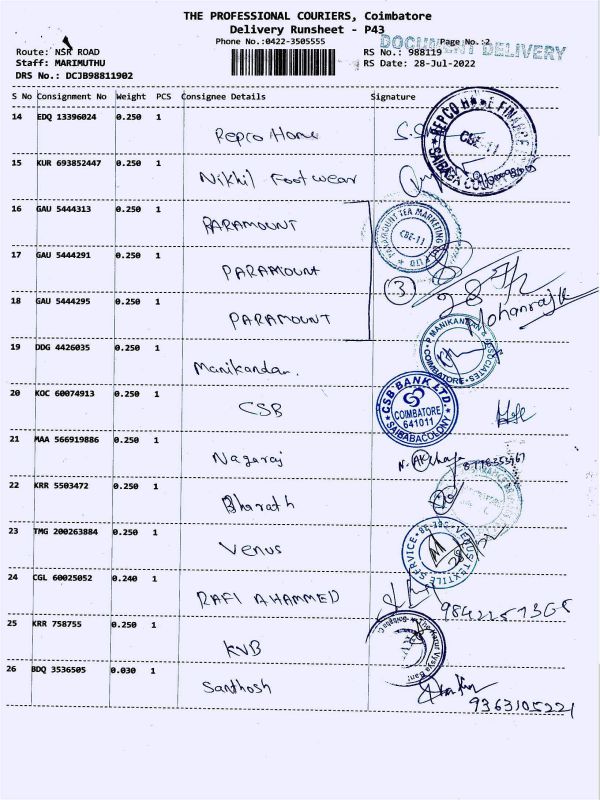 THE PROFESSIONAL COURIERS, Coimbatore
Delivery Runsheet - P43
Phone No.:0422-3505555
Page No.:2
DOCUMENT DELIVERY
Route: NSR ROAD
RS No.: 988119
Staff: MARIMUTHU
RS Date: 28-Jul-2022
DRS No.: DCJB98811902
S No Consignment No Weight PCS Consignee Details Signature
14 EDQ 13396024 0.250 1
Repco Home
REPCO HOME FINANCE
CBE-11
15 KUR 693852447 0.250 1
Nikhil Footwear
16 GAU 5444313 0.250 1
PARAMOUNT
PARAMOUNT TEA MARKETING
CBE-11
17 GAU 5444291 0.250 1
PARAMOUNT
3
28/7/22
Mohanraj
18 GAU 5444295 0.250 1
PARAMOUNT
P MANIKANDAN & ASSOCIATES
COIMBATORE
19 DDG 4426035 0.250 1
Manikandan.
20 KOC 60074913 0.250 1
CSB
CSB BANK LTD.
COIMBATORE
641011
SAIBABACOLONY
21 MAA 566919886 0.250 1
Nagaraj
22 KRR 5503472 0.250 1
Bharath
23 TMG 200263884 0.250 1
Venus
VENUS TEXTILE SERVICE
24 CGL 60025052 0.240 1
RAFI AHAMMED
25 KRR 758755 0.250 1
KVB
The Karur Vysya Bank
26 BDQ 3536505 0.030 1
Santhosh
9363105221